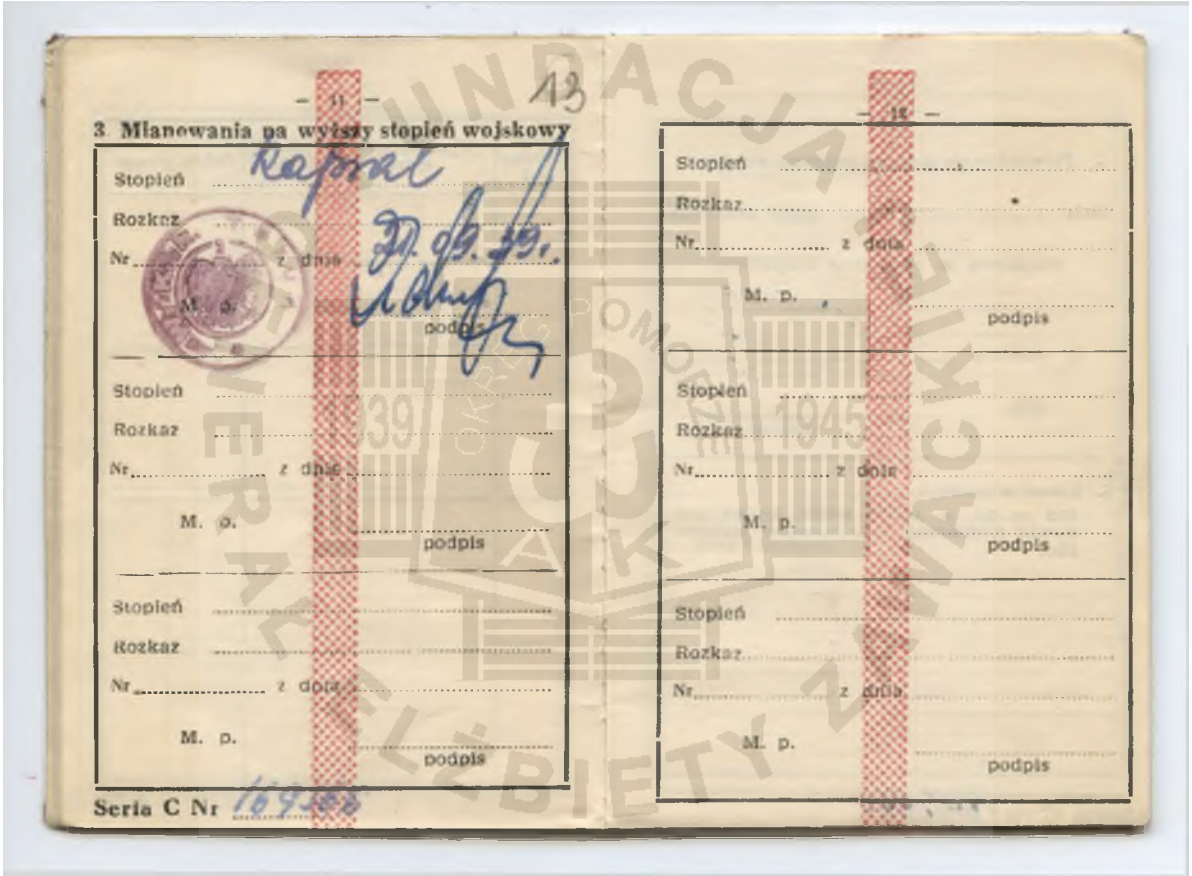 - 11 -
13
3. Mianowania na wyższy stopień wojskowy
Stopień kapral
Rozkaz
Nr z dnia
M. p.
podpis
Stopień
Rozkaz
Nr z dnia
M. p.
podpis
Stopień
Rozkaz
Nr z dnia
M. p.
podpis
Seria C Nr
- 12 -
Stopień
Rozkaz
Nr z dnia
M. p.
podpis
Stopień
Rozkaz
Nr z dnia
M. p.
podpis
Stopień
Rozkaz
Nr z dnia
M. p.
podpis
FUNDACJA GENERAŁ ELŻBIETY ZAWACKIEJ
OKRĘG POMORZE
1939
1945
AK